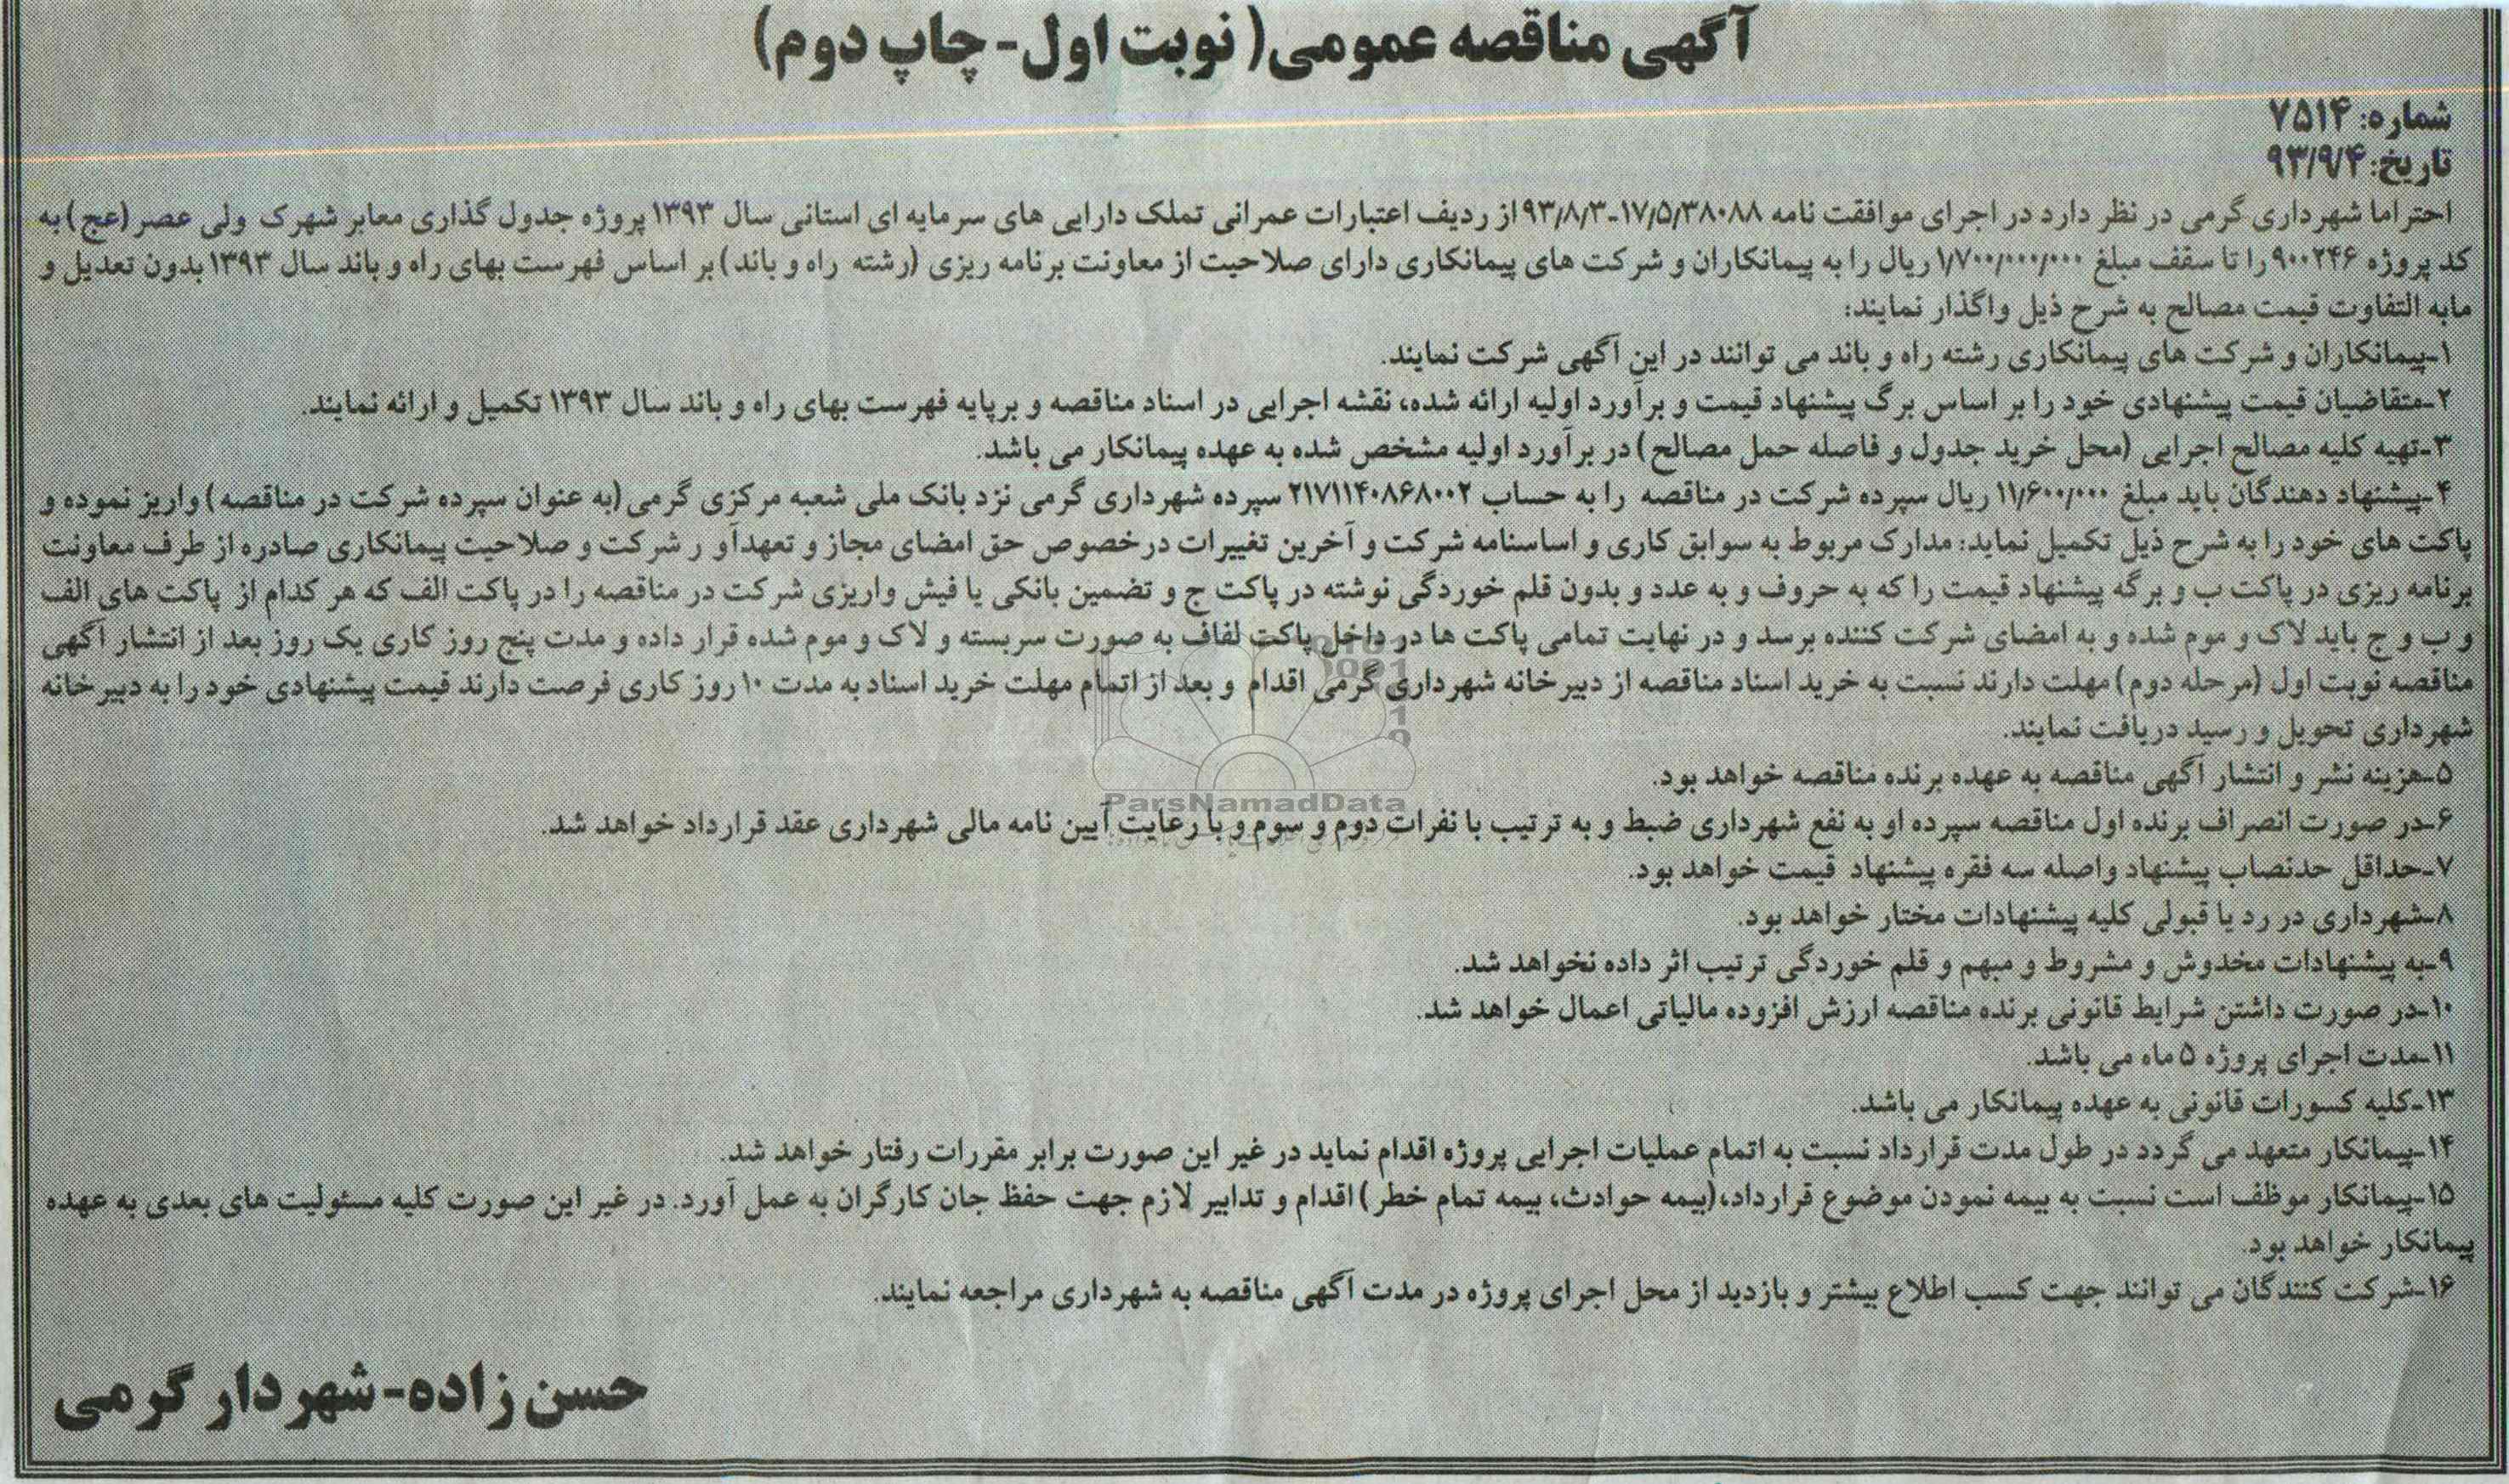 آگهی مناقصه عمومی( نوبت اول- چاپ دوم)
شماره: ۷۵۱۴
تاریخ: ۹۳/۹/۴
احتراما شهرداری گرمی در نظر دارد در اجرای موافقت نامه ۱۷/۵/۳۸۰۸۸-۹۳/۸/۳ از ردیف اعتبارات عمرانی تملک دارایی های سرمایه ای استانی سال ۱۳۹۳ پروژه جدول گذاری معابر شهرک ولی عصر(عج) به
کد پروژه ۹۰۰۲۴۶ را تا سقف مبلغ ۱/۷۰۰/۰۰۰/۰۰۰ ریال را به پیمانکاران و شرکت های پیمانکاری دارای صلاحیت از معاونت برنامه ریزی (رشته راه و باند) بر اساس فهرست بهای راه و باند سال ۱۳۹۳ بدون تعدیل و
مابه التفاوت قیمت مصالح به شرح ذیل واگذار نمایند:
۱-پیمانکاران و شرکت های پیمانکاری رشته راه و باند می توانند در این آگهی شرکت نمایند.
۲-متقاضیان قیمت پیشنهادی خود را بر اساس برگ پیشنهاد قیمت و برآورد اولیه ارائه شده، نقشه اجرایی در اسناد مناقصه و برپایه فهرست بهای راه و باند سال ۱۳۹۳ تکمیل و ارائه نمایند.
۳-تهیه کلیه مصالح اجرایی (محل خرید جدول و فاصله حمل مصالح) در برآورد اولیه مشخص شده به عهده پیمانکار می باشد.
۴-پیشنهاد دهندگان باید مبلغ ۱۱/۶۰۰/۰۰۰ ریال سپرده شرکت در مناقصه را به حساب ۲۱۷۱۱۴۰۸۶۸۰۰۲ سپرده شهرداری گرمی نزد بانک ملی شعبه مرکزی گرمی (به عنوان سپرده شرکت در مناقصه) واریز نموده و
پاکت های خود را به شرح ذیل تکمیل نماید: مدارک مربوط به سوابق کاری و اساسنامه شرکت و آخرین تغییرات درخصوص حق امضای مجاز و تعهدآو ر شرکت و صلاحیت پیمانکاری صادره از طرف معاونت
برنامه ریزی در پاکت ب و برگه پیشنهاد قیمت را که به حروف و به عدد و بدون قلم خوردگی نوشته در پاکت ج و تضمین بانکی یا فیش واریزی شرکت در مناقصه را در پاکت الف که هر کدام از پاکت های الف
و ب و ج باید لاک و موم شده و به امضای شرکت کننده برسد و در نهایت تمامی پاکت ها در داخل پاکت لفاف به صورت سربسته و لاک و موم شده قرار داده و مدت پنج روز کاری یک روز بعد از انتشار آگهی
مناقصه نوبت اول (مرحله دوم) مهلت دارند نسبت به خرید اسناد مناقصه از دبیرخانه شهرداری گرمی اقدام و بعد از اتمام مهلت خرید اسناد به مدت ۱۰ روز کاری فرصت دارند قیمت پیشنهادی خود را به دبیرخانه
شهرداری تحویل و رسید دریافت نمایند.
۵-هزینه نشر و انتشار آگهی مناقصه به عهده برنده مناقصه خواهد بود.
ParsNamadData
۶-در صورت انصراف برنده اول مناقصه سپرده او به نفع شهرداری ضبط و به ترتیب با نفرات دوم و سوم و با رعایت آیین نامه مالی شهرداری عقد قرارداد خواهد شد.
۷-حداقل حدنصاب پیشنهاد واصله سه فقره پیشنهاد قیمت خواهد بود.
۸-شهرداری در رد یا قبولی کلیه پیشنهادات مختار خواهد بود.
۹-به پیشنهادات مخدوش و مشروط و مبهم و قلم خوردگی ترتیب اثر داده نخواهد شد.
۱۰-در صورت داشتن شرایط قانونی برنده مناقصه ارزش افزوده مالیاتی اعمال خواهد شد.
۱۱-مدت اجرای پروژه ۵ ماه می باشد.
۱۳-کلیه کسورات قانونی به عهده پیمانکار می باشد.
۱۴-پیمانکار متعهد می گردد در طول مدت قرارداد نسبت به اتمام عملیات اجرایی پروژه اقدام نماید در غیر این صورت برابر مقررات رفتار خواهد شد.
۱۵-پیمانکار موظف است نسبت به بیمه نمودن موضوع قرارداد،(بیمه حوادث، بیمه تمام خطر) اقدام و تدابیر لازم جهت حفظ جان کارگران به عمل آورد. در غیر این صورت کلیه مسئولیت های بعدی به عهده
پیمانکار خواهد بود.
۱۶-شرکت کنندگان می توانند جهت کسب اطلاع بیشتر و بازدید از محل اجرای پروژه در مدت آگهی مناقصه به شهرداری مراجعه نمایند.
حسن زاده-شهردار گرمی